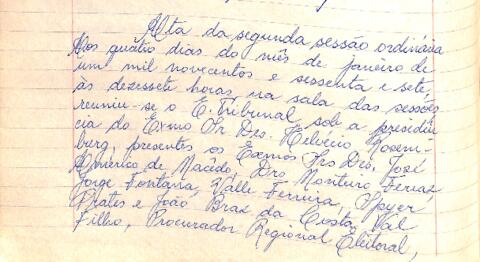 Ata da segunda sessão ordinária
Aos quatro dias do mês de janeiro de
um mil novecentos e sessenta e sete,
às dezessete horas, na sala das sessões
reuniu-se o E. Tribunal sob a presidên
cia do Exmo Sr. Des. Helvécio Rosem-
berg, presentes os Exmos Srs Drs. José
Américo de Macêdo, Drs. Monteiro Ferraz
Jorge Fontana, Valle Ferreira, Spyer
Prates e João Braz da Costa Val
Filho, Procurador Regional Eleitoral,